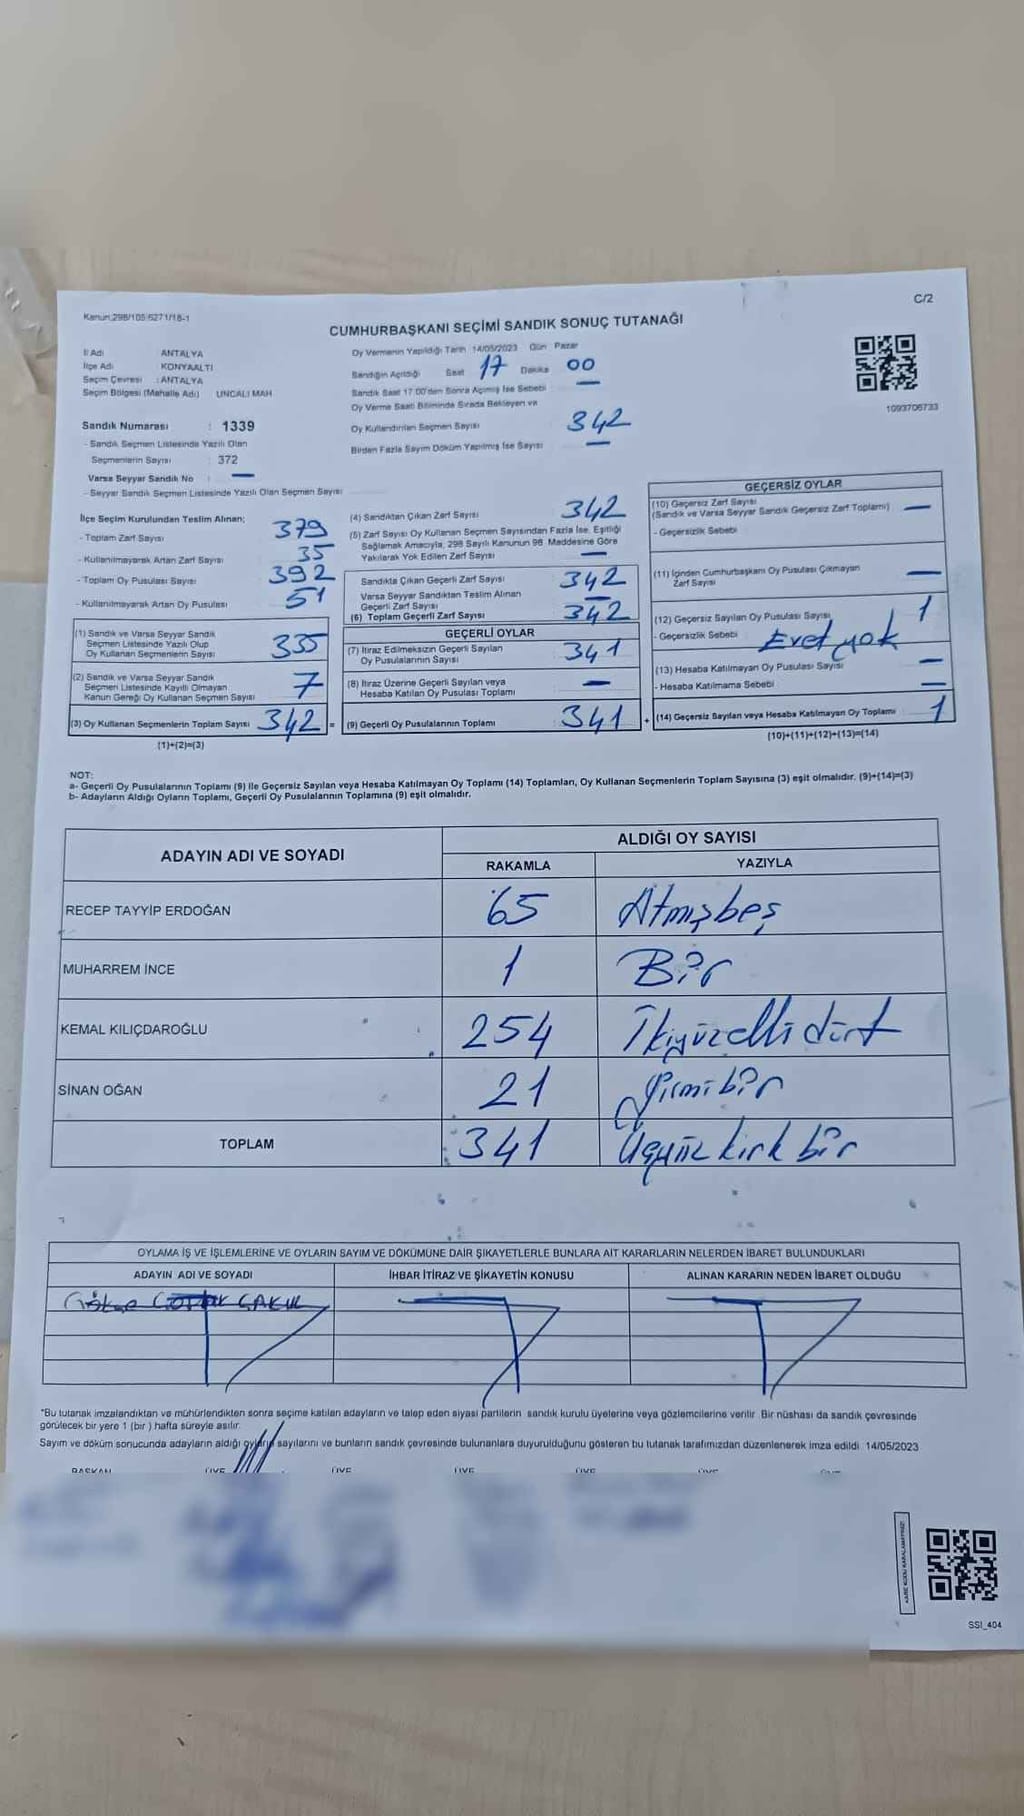 C/2
Kanun:298/105 6271/18-1
CUMHURBAŞKANI SEÇİMİ SANDIK SONUÇ TUTANAĞI
İl Adı ANTALYA
İlçe Adı KONYAALTI
Seçim Çevresi : ANTALYA
Seçim Bölgesi (Mahalle Adı) UNCALI MAH
Sandık Numarası : 1339
- Sandık Seçmen Listesinde Yazılı Olan
Seçmenlerin Sayısı : 372
Varsa Seyyar Sandık No : —
- Seyyar Sandık Seçmen Listesinde Yazılı Olan Seçmen Sayısı
Oy Vermenin Yapıldığı Tarih 14/05/2023 Gün Pazar
Sandığın Açıldığı Saat 17 Dakika 00
Sandık Saat 17:00'den Sonra Açılmış İse Sebebi —
Oy Verme Saati Bitiminde Sırada Bekleyen ve
Oy Kullandırılan Seçmen Sayısı 342
Birden Fazla Sayım Döküm Yapılmış İse Sayısı —
1093706733
İlçe Seçim Kurulundan Teslim Alınan;
- Toplam Zarf Sayısı 379
- Kullanılmayarak Artan Zarf Sayısı 35
- Toplam Oy Pusulası Sayısı 392
- Kullanılmayarak Artan Oy Pusulası 51
(1) Sandık ve Varsa Seyyar Sandık
Seçmen Listesinde Yazılı Olup
Oy Kullanan Seçmenlerin Sayısı 335
(2) Sandık ve Varsa Seyyar Sandık
Seçmen Listesinde Kayıtlı Olmayan
Kanun Gereği Oy Kullanan Seçmen Sayısı 7
(3) Oy Kullanan Seçmenlerin Toplam Sayısı 342 =
(1)+(2)=(3)
(4) Sandıktan Çıkan Zarf Sayısı 342
(5) Zarf Sayısı Oy Kullanan Seçmen Sayısından Fazla İse, Eşitliği
Sağlamak Amacıyla, 298 Sayılı Kanunun 98. Maddesine Göre
Yakılarak Yok Edilen Zarf Sayısı —
Sandıkta Çıkan Geçerli Zarf Sayısı 342
Varsa Seyyar Sandıktan Teslim Alınan
Geçerli Zarf Sayısı —
(6) Toplam Geçerli Zarf Sayısı 342
GEÇERLİ OYLAR
(7) İtiraz Edilmeksizin Geçerli Sayılan
Oy Pusulalarının Sayısı 341
(8) İtiraz Üzerine Geçerli Sayılan veya
Hesaba Katılan Oy Pusulası Toplamı —
(9) Geçerli Oy Pusulalarının Toplamı 341 +
GEÇERSİZ OYLAR
(10) Geçersiz Zarf Sayısı
(Sandık ve Varsa Seyyar Sandık Geçersiz Zarf Toplamı) —
- Geçersizlik Sebebi
(11) İçinden Cumhurbaşkanı Oy Pusulası Çıkmayan
Zarf Sayısı —
(12) Geçersiz Sayılan Oy Pusulası Sayısı 1
- Geçersizlik Sebebi Evet yok
(13) Hesaba Katılmayan Oy Pusulası Sayısı —
- Hesaba Katılmama Sebebi —
(14) Geçersiz Sayılan veya Hesaba Katılmayan Oy Toplamı 1
(10)+(11)+(12)+(13)=(14)
NOT:
a- Geçerli Oy Pusulalarının Toplamı (9) İle Geçersiz Sayılan veya Hesaba Katılmayan Oy Toplamı (14) Toplamları, Oy Kullanan Seçmenlerin Toplam Sayısına (3) eşit olmalıdır. (9)+(14)=(3)
b- Adayların Aldığı Oyların Toplamı, Geçerli Oy Pusulalarının Toplamına (9) eşit olmalıdır.
ADAYIN ADI VE SOYADI ALDIĞI OY SAYISI
RAKAMLA YAZIYLA
RECEP TAYYİP ERDOĞAN 65 Atmışbeş
MUHARREM İNCE 1 Bir
KEMAL KILIÇDAROĞLU 254 İkiyüzellidört
SİNAN OĞAN 21 Yirmibir
TOPLAM 341 Üçyüz kırk bir
OYLAMA İŞ VE İŞLEMLERİNE VE OYLARIN SAYIM VE DÖKÜMÜNE DAİR ŞİKAYETLERLE BUNLARA AİT KARARLARIN NELERDEN İBARET BULUNDUKLARI
ADAYIN ADI VE SOYADI İHBAR İTİRAZ VE ŞİKAYETİN KONUSU ALINAN KARARIN NEDEN İBARET OLDUĞU
*Bu tutanak imzalandıktan ve mühürlendikten sonra seçime katılan adayların ve talep eden siyasi partilerin sandık kurulu üyelerine veya gözlemcilerine verilir. Bir nüshası da sandık çevresinde
görülecek bir yere 1 (bir ) hafta süreyle asılır.
Sayım ve döküm sonucunda adayların aldığı oyların sayılarını ve bunların sandık çevresinde bulunanlara duyurulduğunu gösteren bu tutanak tarafımızdan düzenlenerek imza edildi. 14/05/2023
BAŞKAN ÜYE ÜYE ÜYE ÜYE ÜYE
KARE KODU KARALAMAYINIZ!
SSI_404